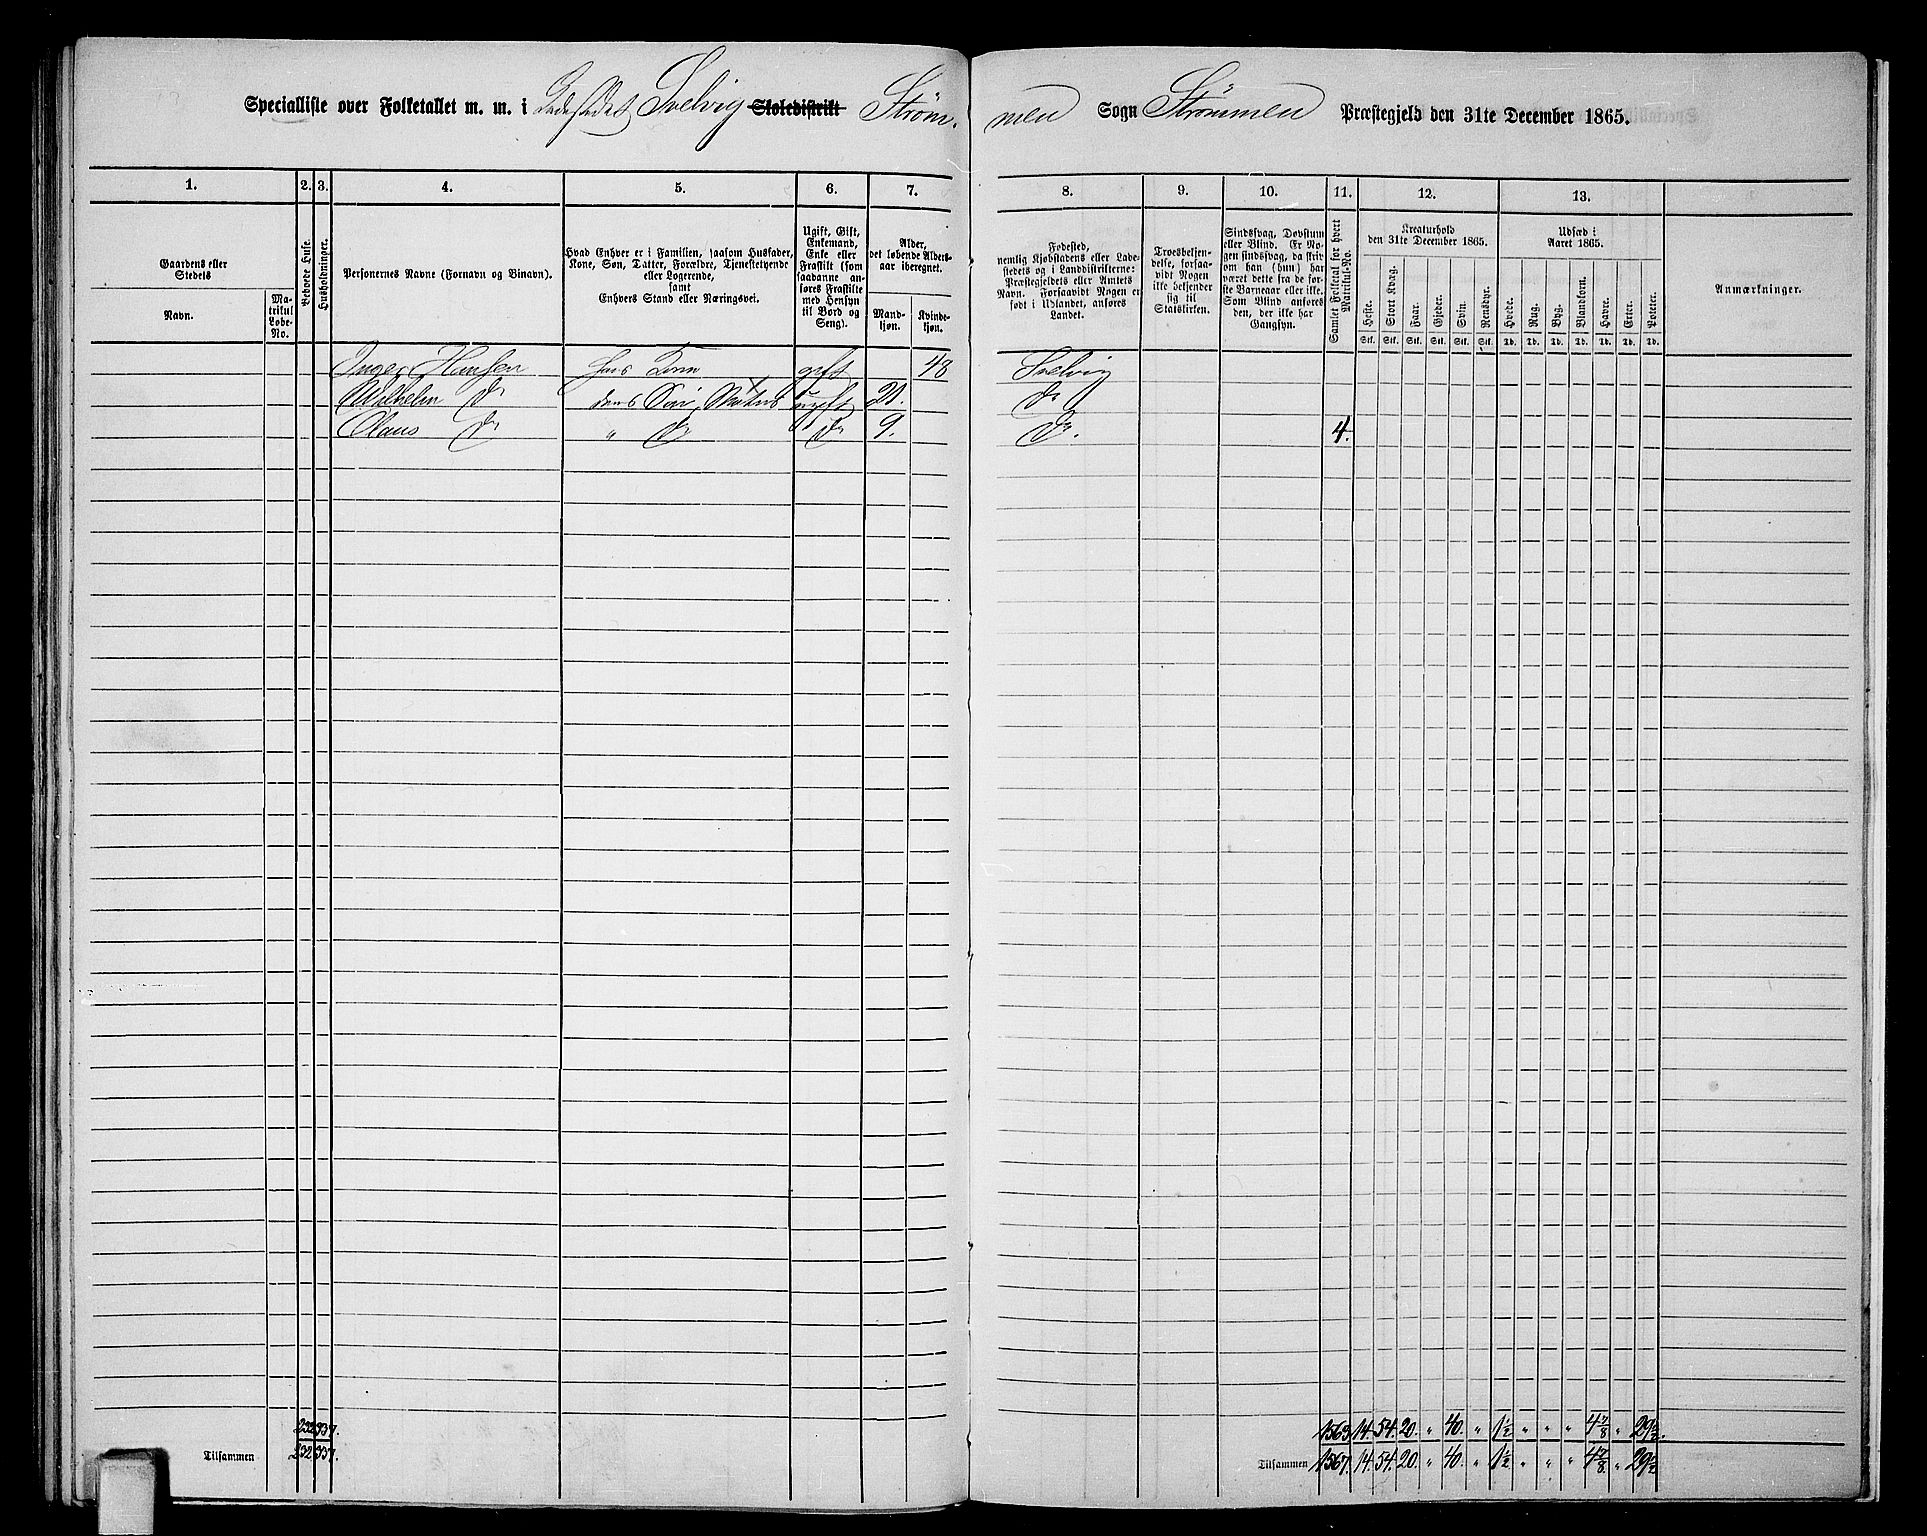 Specialliste over Folketallet m. m. i Ladestedet Svelvig Skoledistrikt Strömmen Sogn Strömmen Præstegjeld den 31te December 1865.
1. 2. 3. 4. 5. 6. 7. 8. 9. 10. 11. 12. 13.
Gaardens eller Stedets
Navn.
Matrikul Løbe-No.
Beboede Huse.
Husholdninger.
Personernes Navne (Fornavn og Binavn).
Hvad Enhver er i Familien, saasom Husfader, Kone, Søn, Datter, Forældre, Tjenestetyende eller Logerende, samt Enhvers Stand eller Næringsvei.
Ugift, Gift, Enkemand, Enke eller Fraskilt (som saadanne anføres Fraskilte med Hensyn til Bord og Seng).
Alder, det løbende Alders-aar iberegnet.
Mand-kjøn.
Kvinde-kjøn.
Fødested, nemlig Kjøbstadens eller Ladestedets og i Landdistrikterne: Præstegjeldets eller Amtets Navn. Forsaavidt Nogen er født i Udlandet, anføres Landet.
Troesbekjendelse, forsaavidt Nogen ikke bekjender sig til Statskirken.
Sindssvag, Døvstum eller Blind. Er Nogen sindssvag, da skriv om han (hun) har været dette fra de første Barneaar eller ikke. Som Blind anføres den, der ikke har Gangsyn.
Samlet Folketal for hvert Matrikul-No.
Kreaturhold den 31te December 1865.
Heste. Stort Kvæg. Faar. Gjeder. Svin. Rensdyr.
Stk. Stk. Stk. Stk. Stk. Stk.
Udsæd i Aaret 1865.
Hvede. Rug. Byg. Blandkorn. Havre. Erter. Poteter.
Td. Td. Td. Td. Td. Td. Td.
Anmærkninger.
Inger Hansen hans Kone gift 48 Svelvig
Wilhelm do deres Søn, Matros ugift 21. do
Olaus do " do do 9. do. 4.
232 337. 1563 14. 54. 20. " 40. " 1½ " " " 4⅞ " 29½.
Tilsammen 232 337. Tilsammen 1567. 14. 54. 20. " 40. " 1½ " " " 4⅞. " 29½